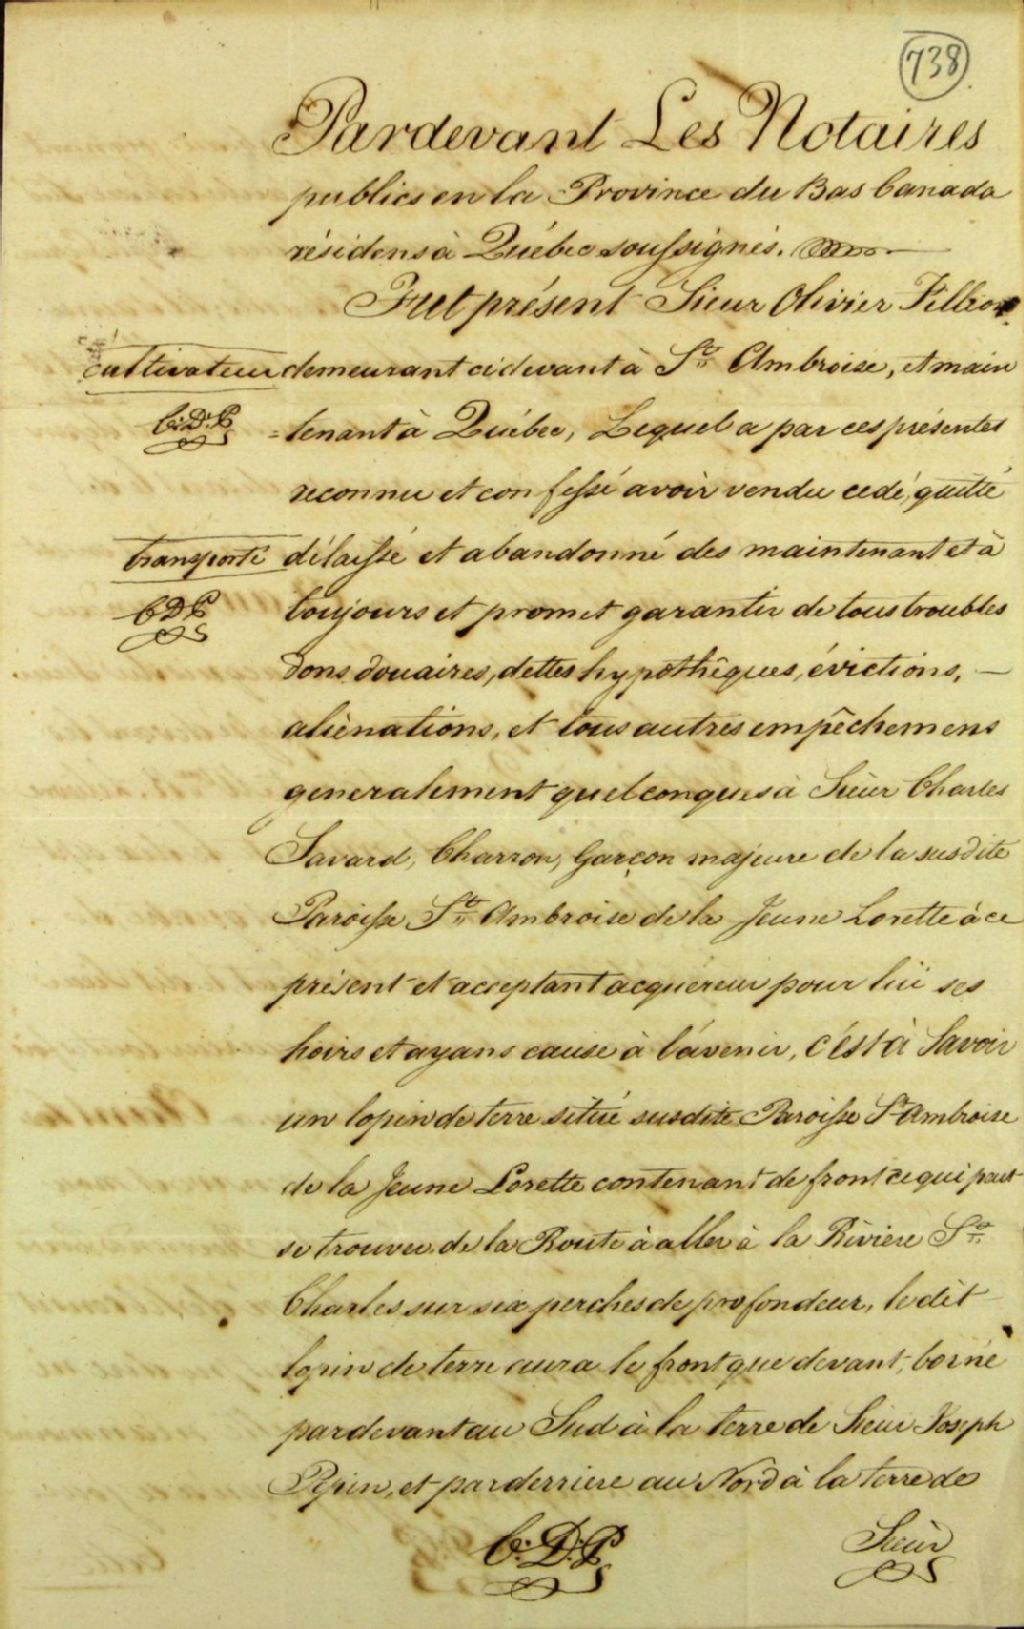 738
Pardevant Les Notaires
publics en la Province du Bas Canada
résidens à Québec soussignés.
Fut présent Sieur Olivier Fillion
cultivateur demeurant cidevant à St. Ambroise, et main
C.D.P. =tenant à Québec, Lequel a par ces présentes
reconnu et confessé avoir vendu cedé, quitté
transporté délaissé et abandonné des maintenant et à
C.D.P. toujours et promet garantir de tous troubles
dons, douaires, dettes hypothêques, évictions, —
aliènations, et tous autres empêchemens
generalement quelconques à Sieur Charles
Savard, Charron, Garçon majeure de la susdite
Paroisse St. Ambroise de la Jeune Lorette à ce
présent et acceptant acquéreur pour lui ses
hoirs et ayans cause à l'avenir, c'est à Savoir
un lopin de terre situé susdite Paroisse St Ambroise
de la Jeune Lorette contenant de front ce qui peut
se trouver de la Route à aller à la Rivière St.
Charles sur six perches de profondeur, le dit
lopin de terre aura le front que devant, borné
pardevant au Sud à la terre de Sieur Joseph
Pepin, et par derriere au Nord à la terre de
C.D.P. Sieur